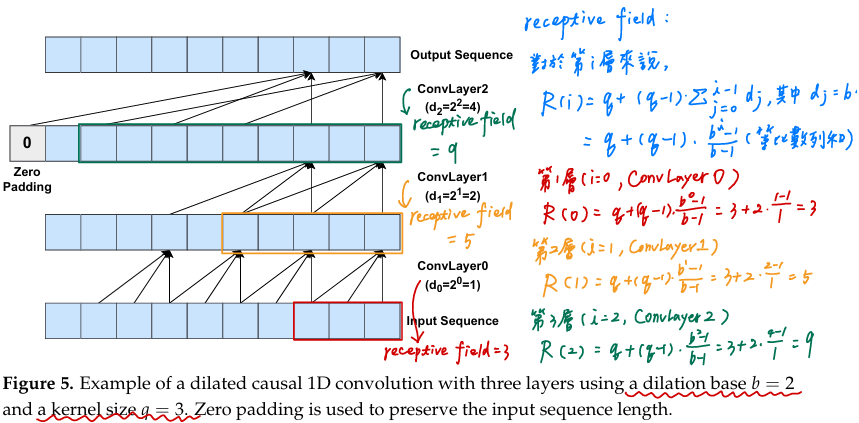 Output Sequence
ConvLayer2
(d₂=2²=4)
receptive field
= 9
0
Zero
Padding
ConvLayer1
(d₁=2¹=2)
receptive field
= 5
ConvLayer0
(d₀=2⁰=1)
Input Sequence
receptive field=3
receptive field :
對於第i層來說,
R(i) = q + (q-1)·∑_{j=0}^{i-1} dⱼ, 其中 dⱼ = b
= q + (q-1) · (bⁱ-1)/(b-1) (等比數列和)
第1層 (i=0, ConvLayer 0)
R(0) = q+(q-1)·(b⁰-1)/(b-1) = 3+2·(1-1)/1 = 3
第2層 (i=1, ConvLayer1)
R(1) = q+(q-1)·(b¹-1)/(b-1) = 3+2·(2-1)/1 = 5
第3層 (i=2, ConvLayer2)
R(2) = q+(q-1)·(b²-1)/(b-1) = 3+2·(4-1)/1 = 9
Figure 5. Example of a dilated causal 1D convolution with three layers using a dilation base b = 2
and a kernel size q = 3. Zero padding is used to preserve the input sequence length.